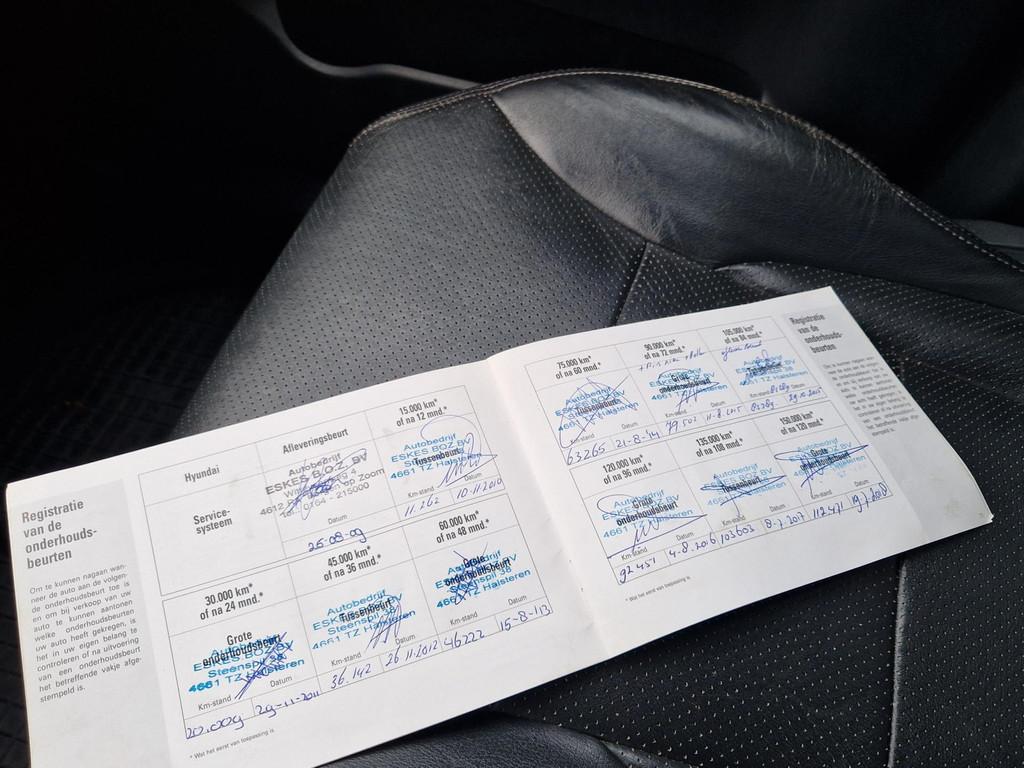 Registratie
van de
onderhouds-
beurten
Om te kunnen nagaan wan-
neer de auto aan de volgen-
de onderhoudsbeurt toe is
en om bij verkoop van uw
auto te kunnen aantonen
welke onderhoudsbeurten
uw auto heeft gekregen, is
het in uw eigen belang te
controleren of na uitvoering
van een onderhoudsbeurt
het betreffende vakje afge-
stempeld is.
Hyundai
Service-
systeem
Afleveringsbeurt
Autobedrijf
ESKES B.O.Z. BV
4612 op Zoom
Tel. 0164 - 215000
Datum
25-08-09
15.000 km*
of na 12 mnd.*
Autobedrijf
ESKES BOZ BV
Steenspil 38
Tussenbeurt
4661 TZ Halsteren
Km-stand Datum
11.262 10-11-2010
30.000 km*
of na 24 mnd.*
Grote
onderhoudsbeurt
ESKES BOZ BV
Steenspil 38
4661 TZ Halsteren
Km-stand Datum
20.009 29-11-2011
45.000 km*
of na 36 mnd.*
Autobedrijf
Tussenbeurt
Steenspil 38
4661 TZ Halsteren
Km-stand Datum
36.142 26 11-2012
60.000 km*
of na 48 mnd.*
Autobedrijf
Grote
onderhoudsbeurt
Steenspil 38
4661 TZ Halsteren
Km-stand Datum
46222 15-8-113
* Wat het eerst van toepassing is
75.000 km*
of na 60 mnd.*
Autobedrijf
ESKES BOZ BV
Tussenbeurt
Km-stand Datum
63265 21-8-'14
90.000 km*
of na 72 mnd.*
Autobedrijf
Grote
ESKES BOZ BV
onderhoudsbeurt
4661 TZ Halsteren
Km-stand Datum
79.502 11-8-2015
105.000 km*
of na 84 mnd.*
Autobedrijf
ESKES BOZ BV
Tussenbeurt
4661 TZ Halsteren
Km-stand Datum
29.10.2015
120.000 km*
of na 96 mnd.*
Autobedrijf
Grote
ESKES BOZ BV
onderhoudsbeurt
4661 TZ Halsteren
Km-stand Datum
92.451 4.8.2016
135.000 km*
of na 108 mnd.*
Autobedrijf
ESKES BOZ BV
Tussenbeurt
Km-stand Datum
103603 8-7-2017
150.000 km*
of na 120 mnd.*
Autobedrijf
Grote
onderhoudsbeurt
4661 TZ Halsteren
Km-stand Datum
112.471 19-7-2018
* Wat het eerst van toepassing is
Registratie
van de
onderhouds-
beurten